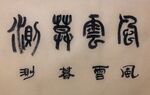 風雲莫測
風雲莫測